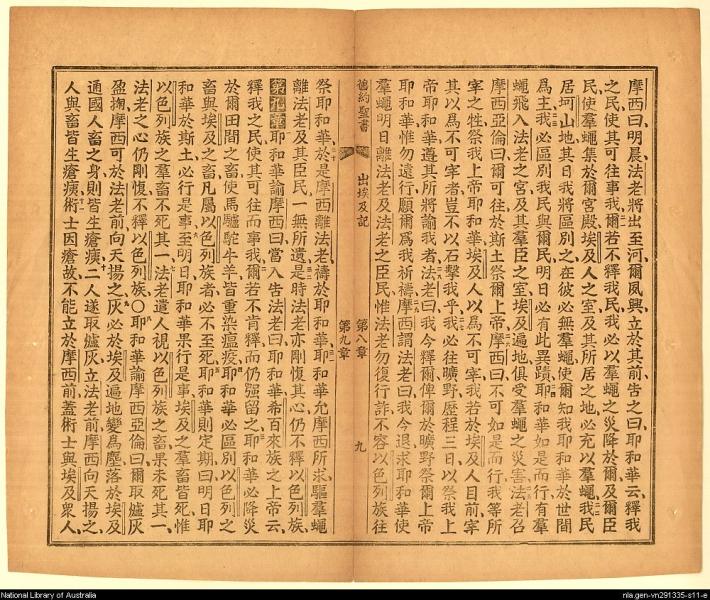 摩西曰明晨法老將出至河爾夙興立於其前告之曰耶和華云釋我
之民使其可往事我爾若不釋我民我必以羣蠅之災降於爾及爾臣
民使羣蠅集於爾宮殿埃及人之室及其所居之地必充以羣蠅我民
居坷山地其日我將區別之在彼必無羣蠅使爾知我耶和華於世間
爲主我必區別我民與爾民明日必有此異蹟耶和華如是而行有羣
蠅飛入法老之宮及其羣臣之室埃及遍地俱受羣蠅之災害法老召
摩西亞倫曰爾可往於斯土祭爾上帝摩西曰不可如是而行我等所
宰之牲祭我上帝耶和華埃及人以爲不可宰我若於埃及人目前宰
其以爲不可宰者豈不以石擊我乎我必往曠野歷程三日以祭我上
帝耶和華遵其所將諭我者法老曰我今釋爾俾爾於曠野祭爾上帝
耶和華惟勿遠行願爾爲我祈禱摩西謂法老曰我今退求耶和華使
羣蠅明日離法老及法老之臣民惟法老勿復行詐不容以色列族往
舊約聖書
出埃及記
第八章
第九章
九
祭耶和華於是摩西離法老禱於耶和華耶和華允摩西所求驅羣蠅
離法老及其臣民一無所遺是時法老亦剛愎其心仍不釋以色列族
第九章耶和華諭摩西曰當入告法老曰耶和華希百來族之上帝云
釋我之民使其可往而事我爾若不肯釋而仍强留之耶和華必降災
於爾田間之畜使馬驢駝牛羊皆重染瘟疫耶和華必區別以色列之
畜與埃及之畜凡屬以色列族者必不至死耶和華則定期曰明日耶
和華於斯土必行是事至明日耶和華果行是事埃及之羣畜皆死惟
以色列族之羣畜不死其一法老遣人視以色列族之畜果未死其一
法老之心仍剛愎不釋以色列族〇耶和華諭摩西亞倫曰爾取爐灰
盈掬摩西可於法老前向天揚之灰必於埃及遍地變爲塵落於埃及
通國人畜之身則皆生瘡瘍二人遂取爐灰立法老前摩西向天揚之
人與畜皆生瘡瘍術士因瘡故不能立於摩西前蓋術士與埃及衆人
National Library of Australia
nla.gen-vn291335-s11-e